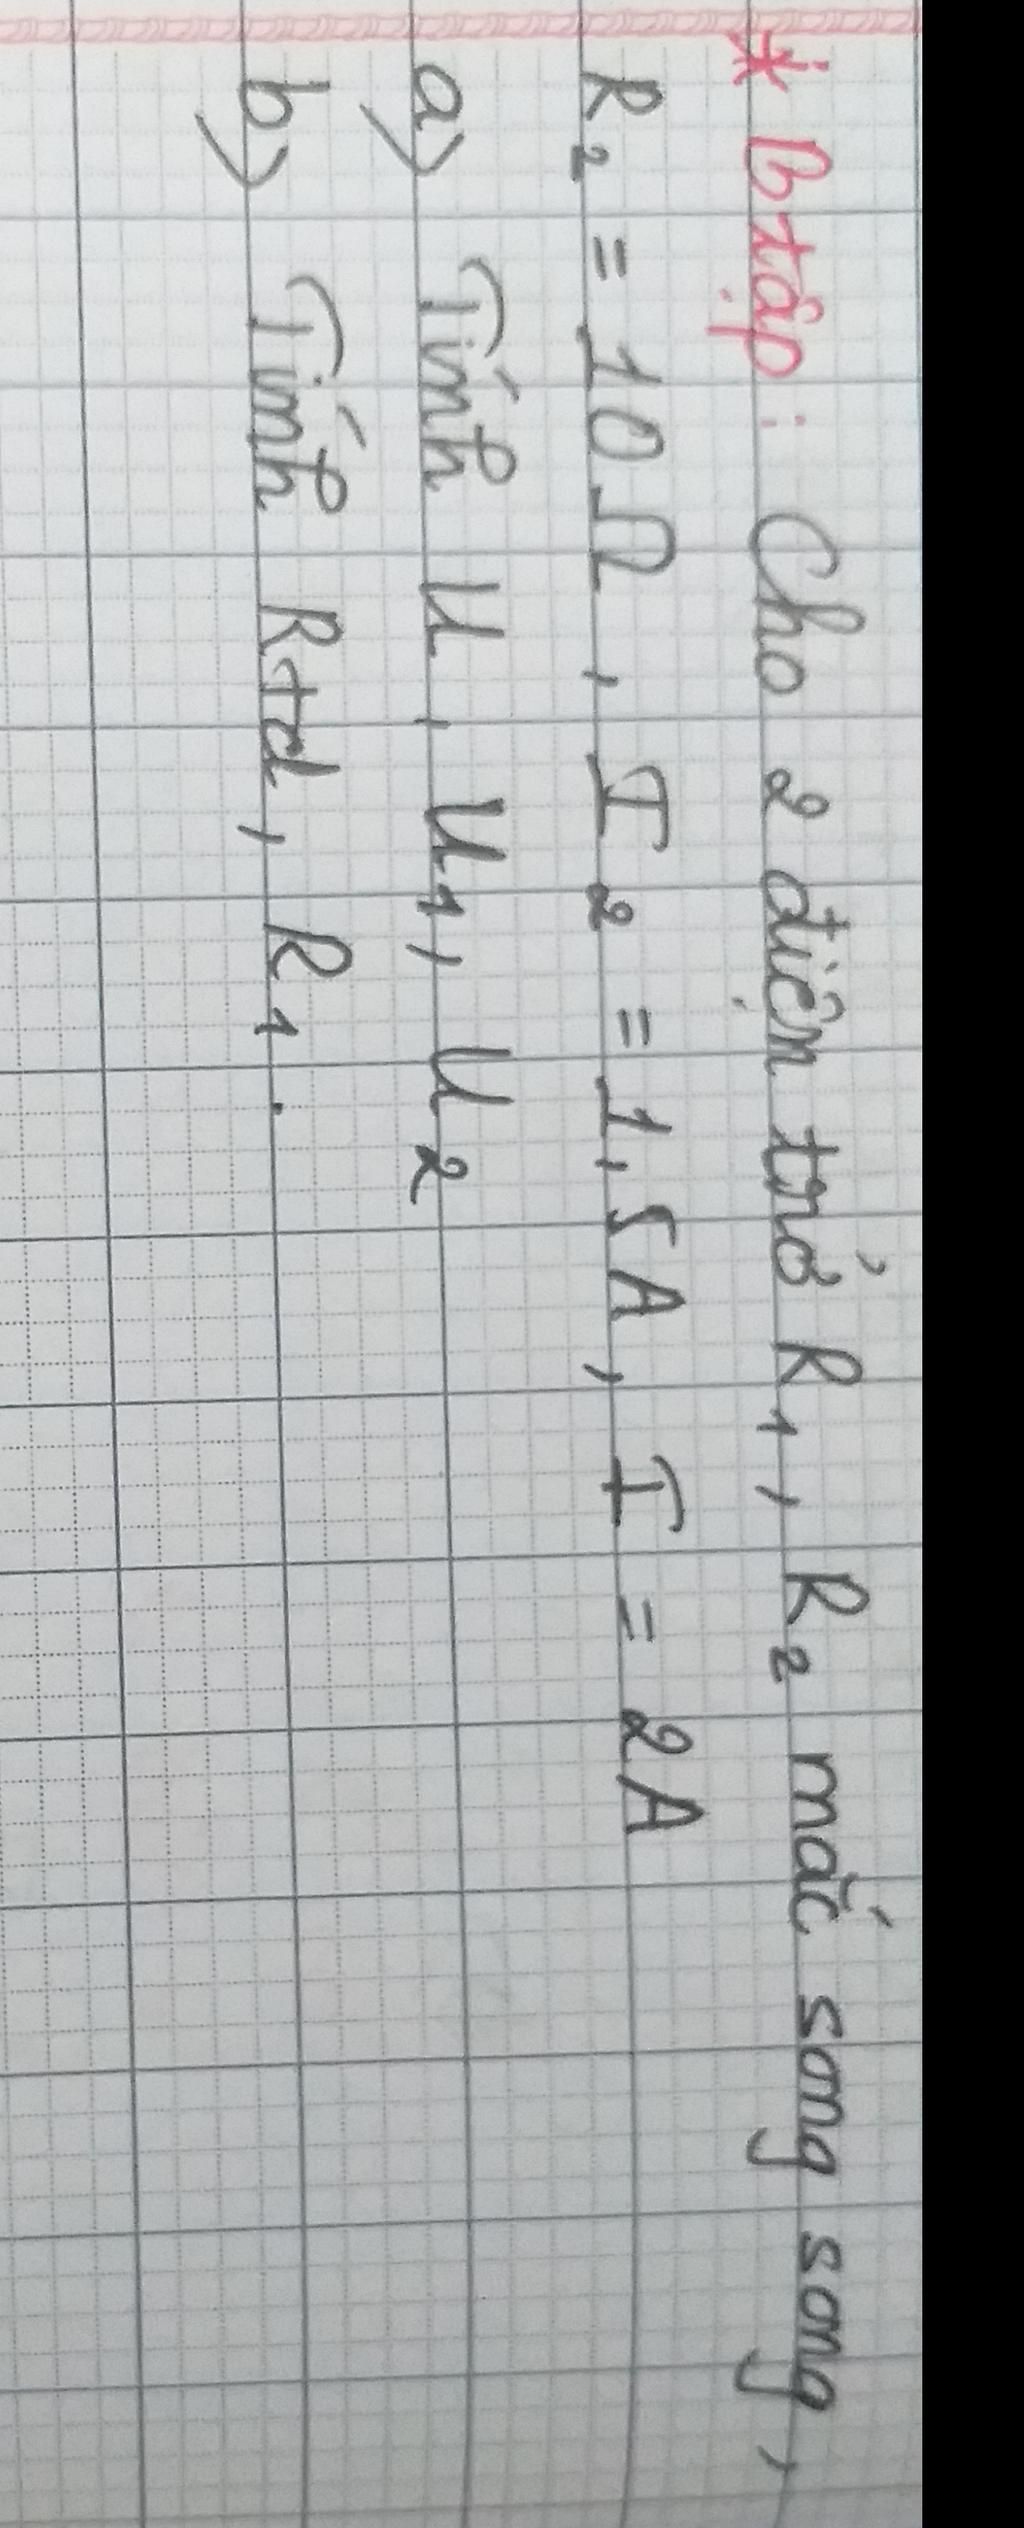 * Btập : Cho 2 điện trở R1, R2 mắc song song,
R2 = 10Ω, I2 = 1,5A, I = 2A
a) Tính U, U1, U2
b) Tính Rtd, R1.